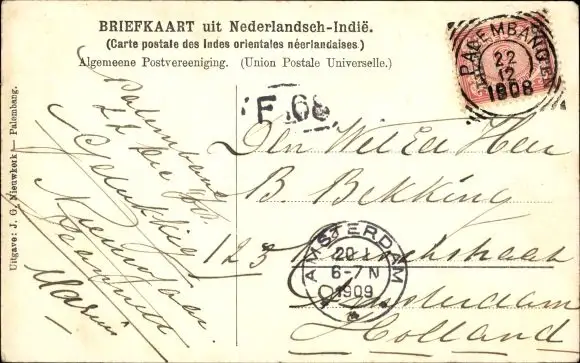 BRIEFKAART uit Nederlandsch-Indië.
(Carte postale des Indes orientales néerlandaises.)
Algemeene Postvereeniging. (Union Postale Universelle.)
PALEMBANG
22
12
1908
F 68
Uitgave: J. G. Nieuwkerk — Palembang.
Palembang
22 Dec
Gelukkig
Nieuwjaar
Den Wel Ed Heer
B. Bekking
123
straat
Amsterdam
Holland
AMSTERDAM
20 1
6-7 N
1909